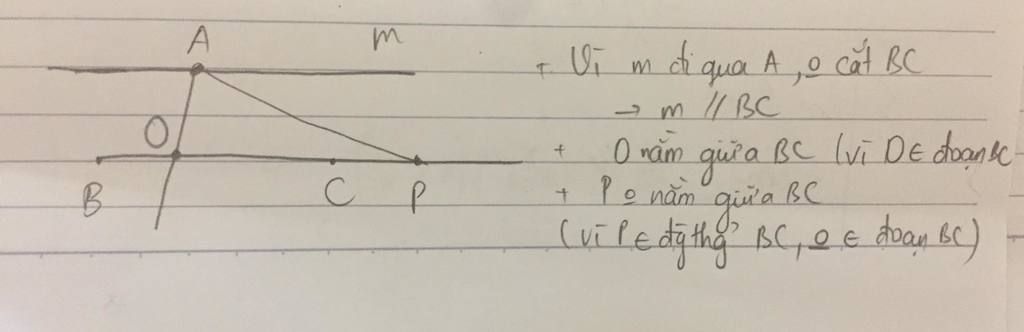 A
m
O
B
C
P
+ Vì m đi qua A, o cắt BC
→ m // BC
+ O nằm giữa BC (vì O ∈ đoạn BC
+ P o nằm giữa BC
(vì P ∈ đg thg̉ BC, o ∈ đoạn BC)